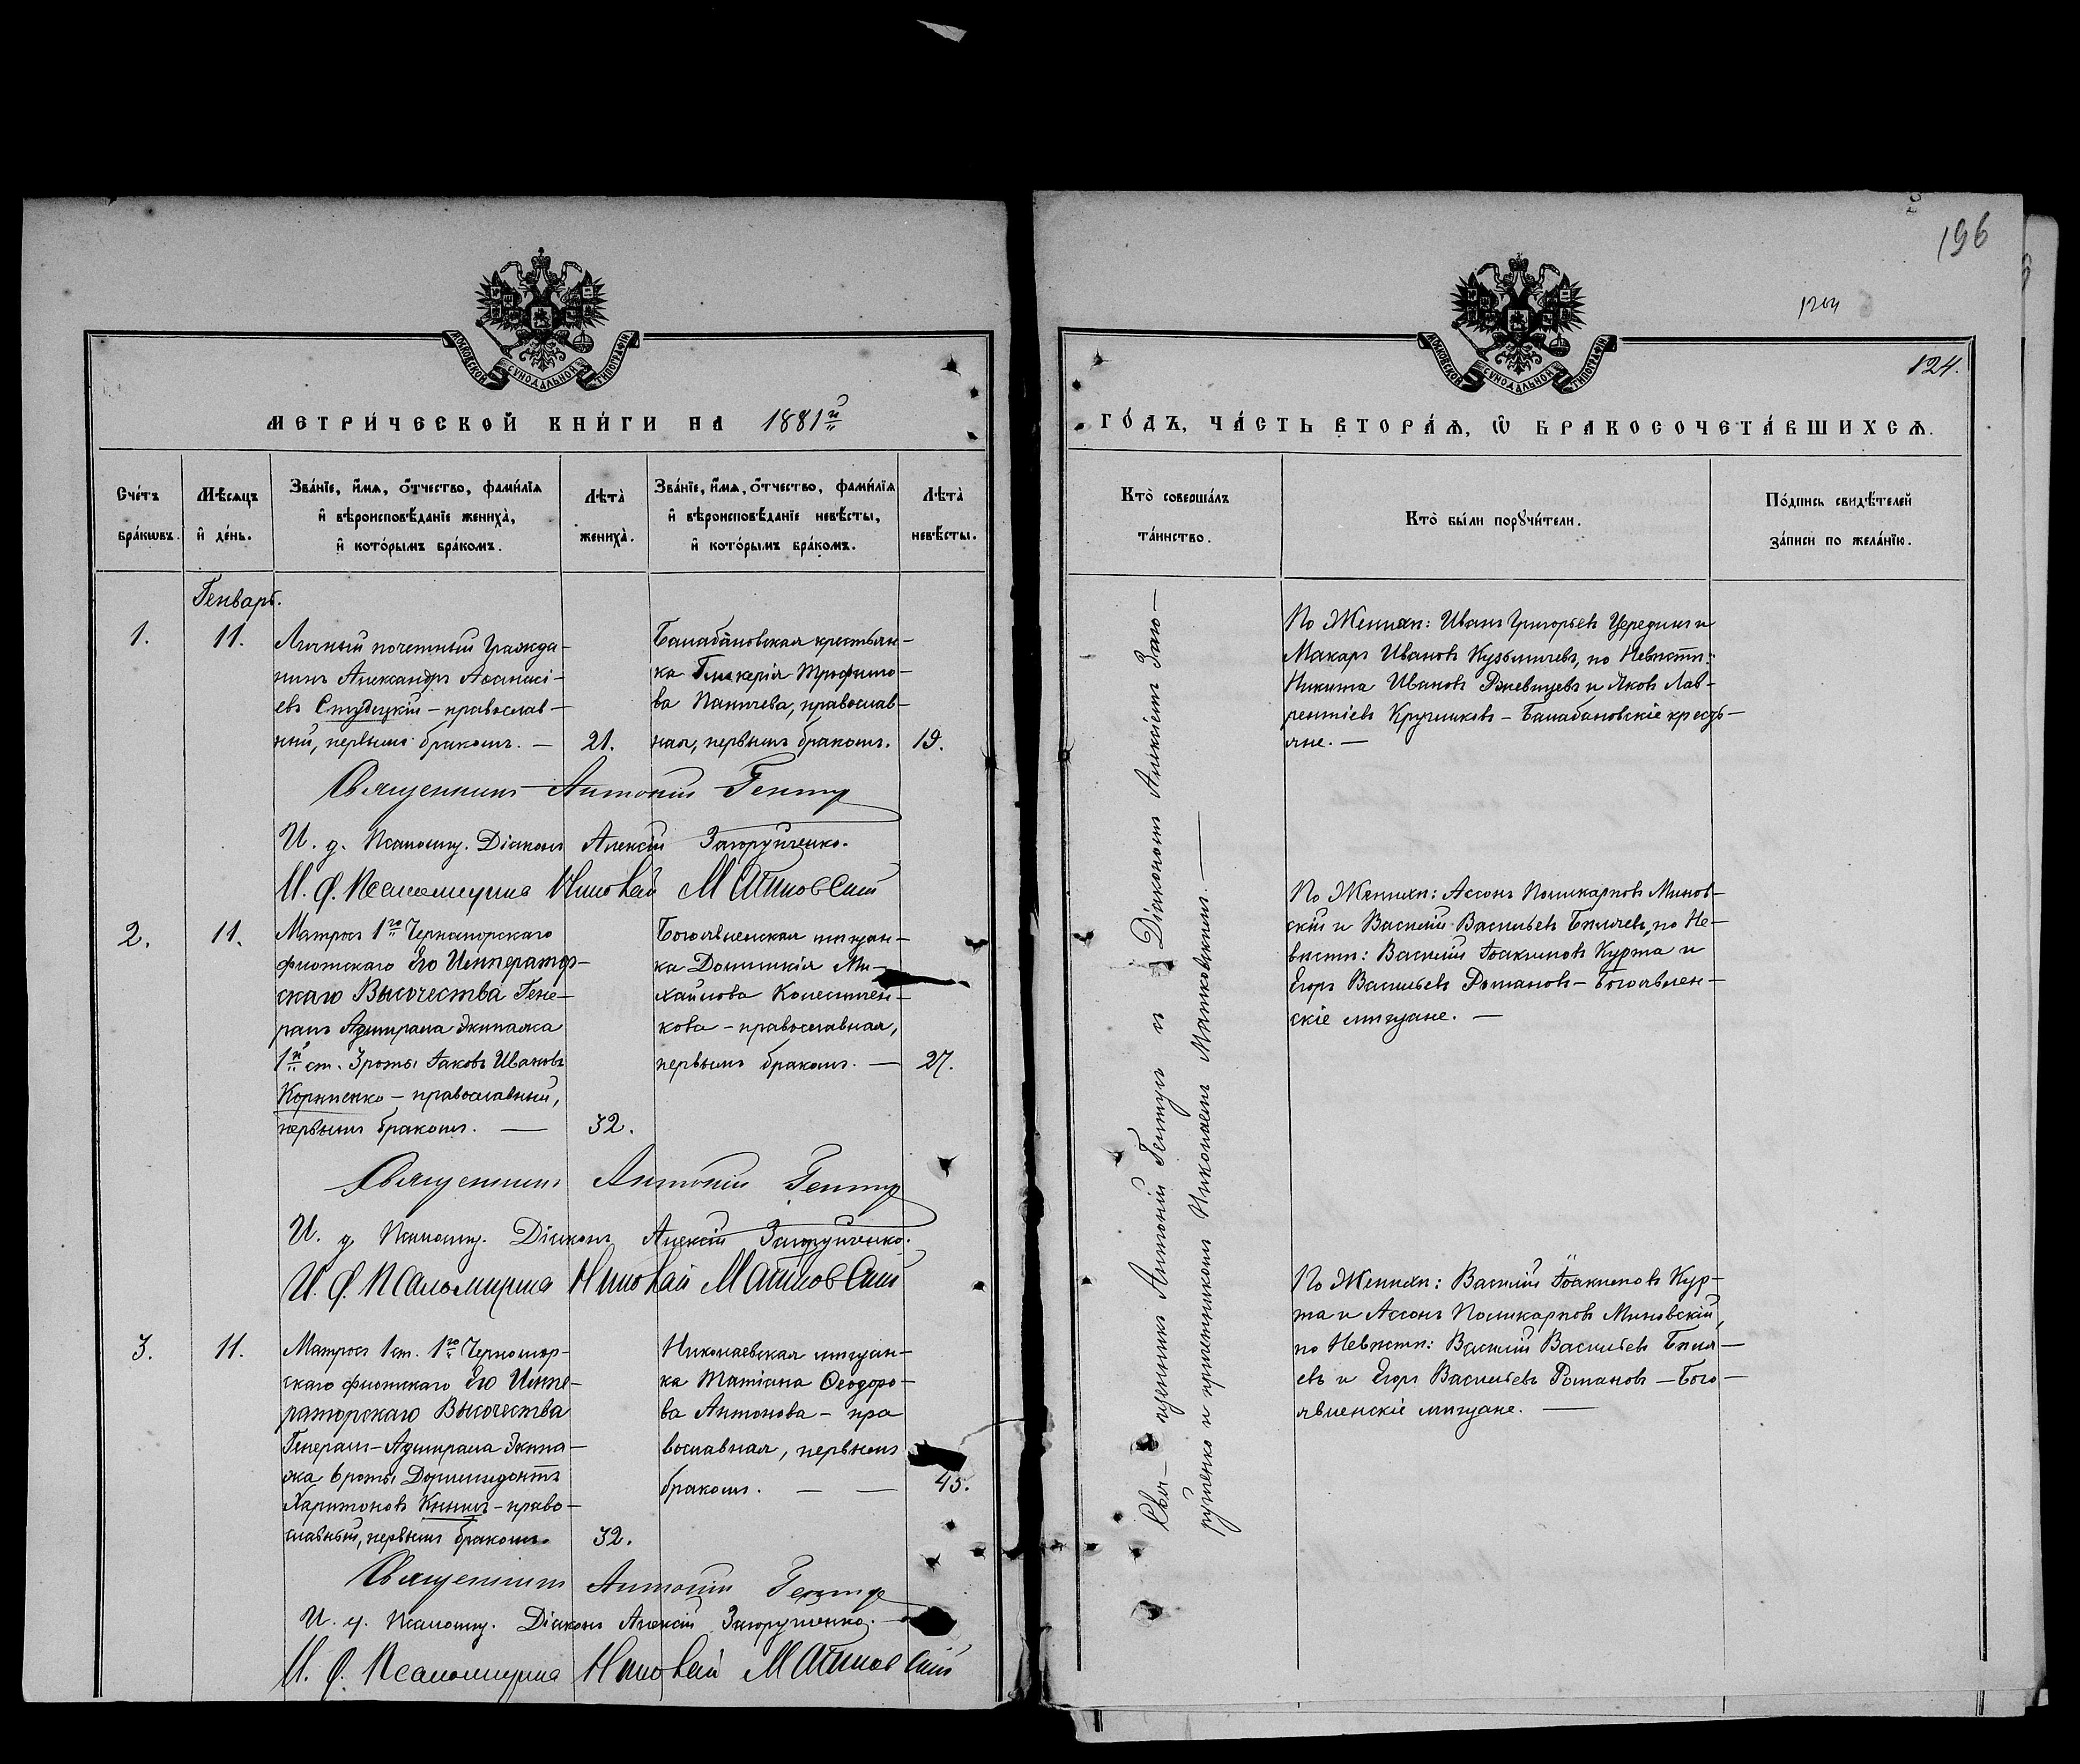 МОСКОВСКОЙ СѴНОДАЛЬНОЙ ТИПОГРАФІИ
МЕТРИ́ЧЕСКОЙ КНИ́ГИ НА 1881й
Сче́тъ бра́кωвъ.
Мѣ́сяцъ и҆ де́нь.
Зва́нїе, и҆́мѧ, ѻ҆́тчество, фами́лїѧ
и҆ вѣроисповѣ́данїе жениха̀,
и҆ кото́рымъ бра́комъ.
Лѣта̀ жениха̀.
Зва́нїе, и҆́мѧ, ѻ҆́тчество, фами́лїѧ
и҆ вѣроисповѣ́данїе невѣ́сты,
и҆ кото́рымъ бра́комъ.
Лѣта̀ невѣ́сты.
Генварь.
1.
11.
Личный почетный Гражда-
нинъ Александръ Аѳанасі-
евъ Студицкій - православ-
ный, первымъ бракомъ. —
21.
Балабановская крестьян-
ка Гликерія Трофимо-
ва Паничева, православ-
ная, первымъ бракомъ.
19.
Священникъ Антоній Гентуръ
И. д. Псаломщ. Діаконъ Алексій Загоруйченко.
И. д. Псаломщика Николай Матковскій
2.
11.
Матросъ 1го Черноморскаго
флотскаго Его Император-
скаго Высочества Гене-
ралъ Адмирала Экипажа
1й ст. 3 роты Іаковъ Ивановъ
Корниенко - православный,
первымъ бракомъ. —
32.
Богоявленская мѣщан-
ка Домникія Ми-
хайлова Колесничен-
кова - православная,
первымъ бракомъ. —
27.
Священникъ Антоній Гентуръ
И. д. Псаломщ. Діаконъ Алексій Загоруйченко.
И. д. Псаломщика Николай Матковскій
3.
11.
Матросъ 1 ст. 1го Черномор-
скаго флотскаго Его Импе-
раторскаго Высочества
Генералъ-Адмирала Экипа-
жа 6 роты Доримедонтъ
Харитоновъ Книшъ - право-
славный, первымъ бракомъ.
32.
Николаевская мѣщан-
ка Татіана Ѳеодоро-
ва Антонова - пра
вославная, первымъ
бракомъ. — —
45.
Священникъ Антоній Гентуръ
И. д. Псаломщ. Діаконъ Алексій Загоруйченко.
И. д. Псаломщика Николай Матковскій
196
124.
МОСКОВСКОЙ СѴНОДАЛЬНОЙ ТИПОГРАФІИ
ГО́ДЪ, ЧА́СТЬ ВТОРА́Ѧ, Ѽ БРАКОСОЧЕТА́ВШИХСѦ.
Кто̀ соверша́лъ
та́инство.
Кто̀ бы́ли порꙋчи́тели.
По́дпись свидѣ́телей
за́писи по жела́нїю.
Священникъ Антоній Гентуръ и Діакономъ Алексіемъ Заго-
руйченко и причетникомъ Николаемъ Матковскимъ. —
По Женихѣ: Иванъ Григорьевъ Чередникъ и
Макаръ Ивановъ Кузьмичевъ, по Невѣстѣ:
Никита Ивановъ Ржевцевъ и Яковъ Лав-
рентіевъ Кручинковъ - Балабановскіе кресть-
яне. —
По Женихѣ: Ассонъ Поликарповъ Минов-
скій и Василій Васильевъ Бѣляевъ, по Не-
вѣстѣ: Василій Іоакимовъ Курта и
Егоръ Васильевъ Романовъ - Богоявлен-
скіе мѣщане. —
По Женихѣ: Василій Іоакимовъ Кур-
та и Ассонъ Поликарповъ Миновскій,
по Невѣстѣ: Василій Васильевъ Бѣля-
евъ и Егоръ Васильевъ Романовъ - Бого-
явленскіе мѣщане. —